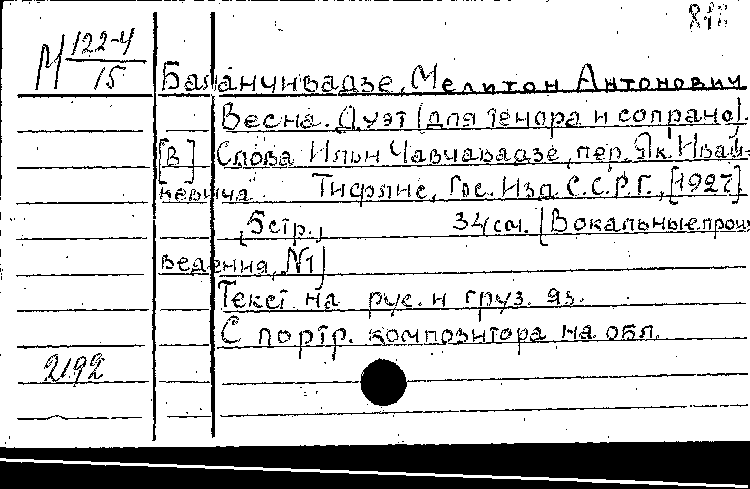 М 122-4
15
Баланчивадзе, Мелитон Антонович
Весна. Дуэт (для тенора и сопрано).
[В] Слова Ильи Чавчавадзе, пер. Як. Иваш-
кевича. Тифлис, Гос. Изд. С.С.Р.Г., [1927].
5 стр., 34 см. (Вокальные произ
ведения, №1)
Текст на рус. и груз. яз.
С портр. композитора на обл.
2192